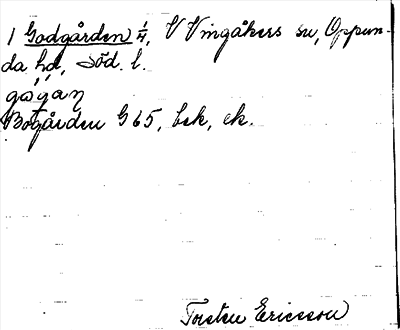 1 Godgården 1/4, V Vingåkers sn, Oppun-
da hd, Söd. l.
Bogården G 65, bek, ek.
Torsten Ericsson